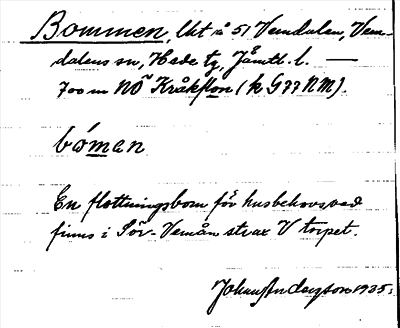 Bommen, lht å 51 Vemdalen, Vem-
dalens sn, Hede tg, Jämtl. l. —
700 m NÖ Kråkflon (k G77NM).
bóman
En flottningsbom för husbehovsved
finns i Sör-Vemån strax V torpet.
Johan Anderson 1935.